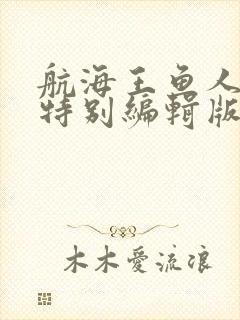 航海王鱼人
特别编辑版
木木爱流浪